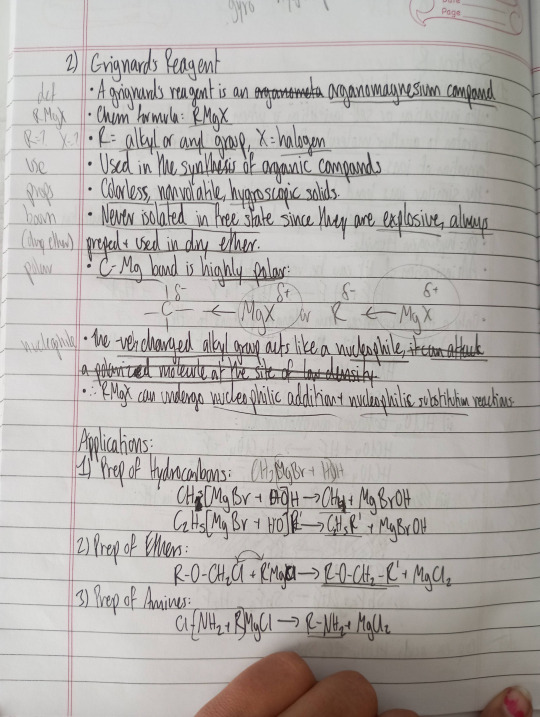 gyro
Date
Page
2) Grignards Reagent
def • A grignards reagent is an organometa organomagnesium compound
RMgX • Chem formula: RMgX
R=? X=? • R= alkyl or aryl group, X= halogen
use • Used in the synthesis of organic compounds
props • Colorless, nonvolatile, hygroscopic solids.
boom • Never isolated in free state since they are explosive, always
(dry ether) preped + used in dry ether.
polar • C-Mg bond is highly polar:
δ- δ+ δ- δ+
-C- ← MgX or R ← MgX
nucleophile • the -vely charged alkyl group acts like a nucleophile, it can attack
a polarized molecule at the site of low density.
• ∴ RMgX can undergo nucleophilic addition + nucleophilic substitution reactions
Applications:
1) Prep of Hydrocarbons: CH3[MgBr + HO]H
CH3[MgBr + HO]H → CH4 + MgBrOH
C2H5[MgBr + HO]R' → C2H5R' + MgBrOH
2) Prep of Ethers:
R-O-CH2Cl + R'MgCl → R-O-CH2-R' + MgCl2
3) Prep of Amines:
Cl[NH2 + R]MgCl → R-NH2 + MgCl2